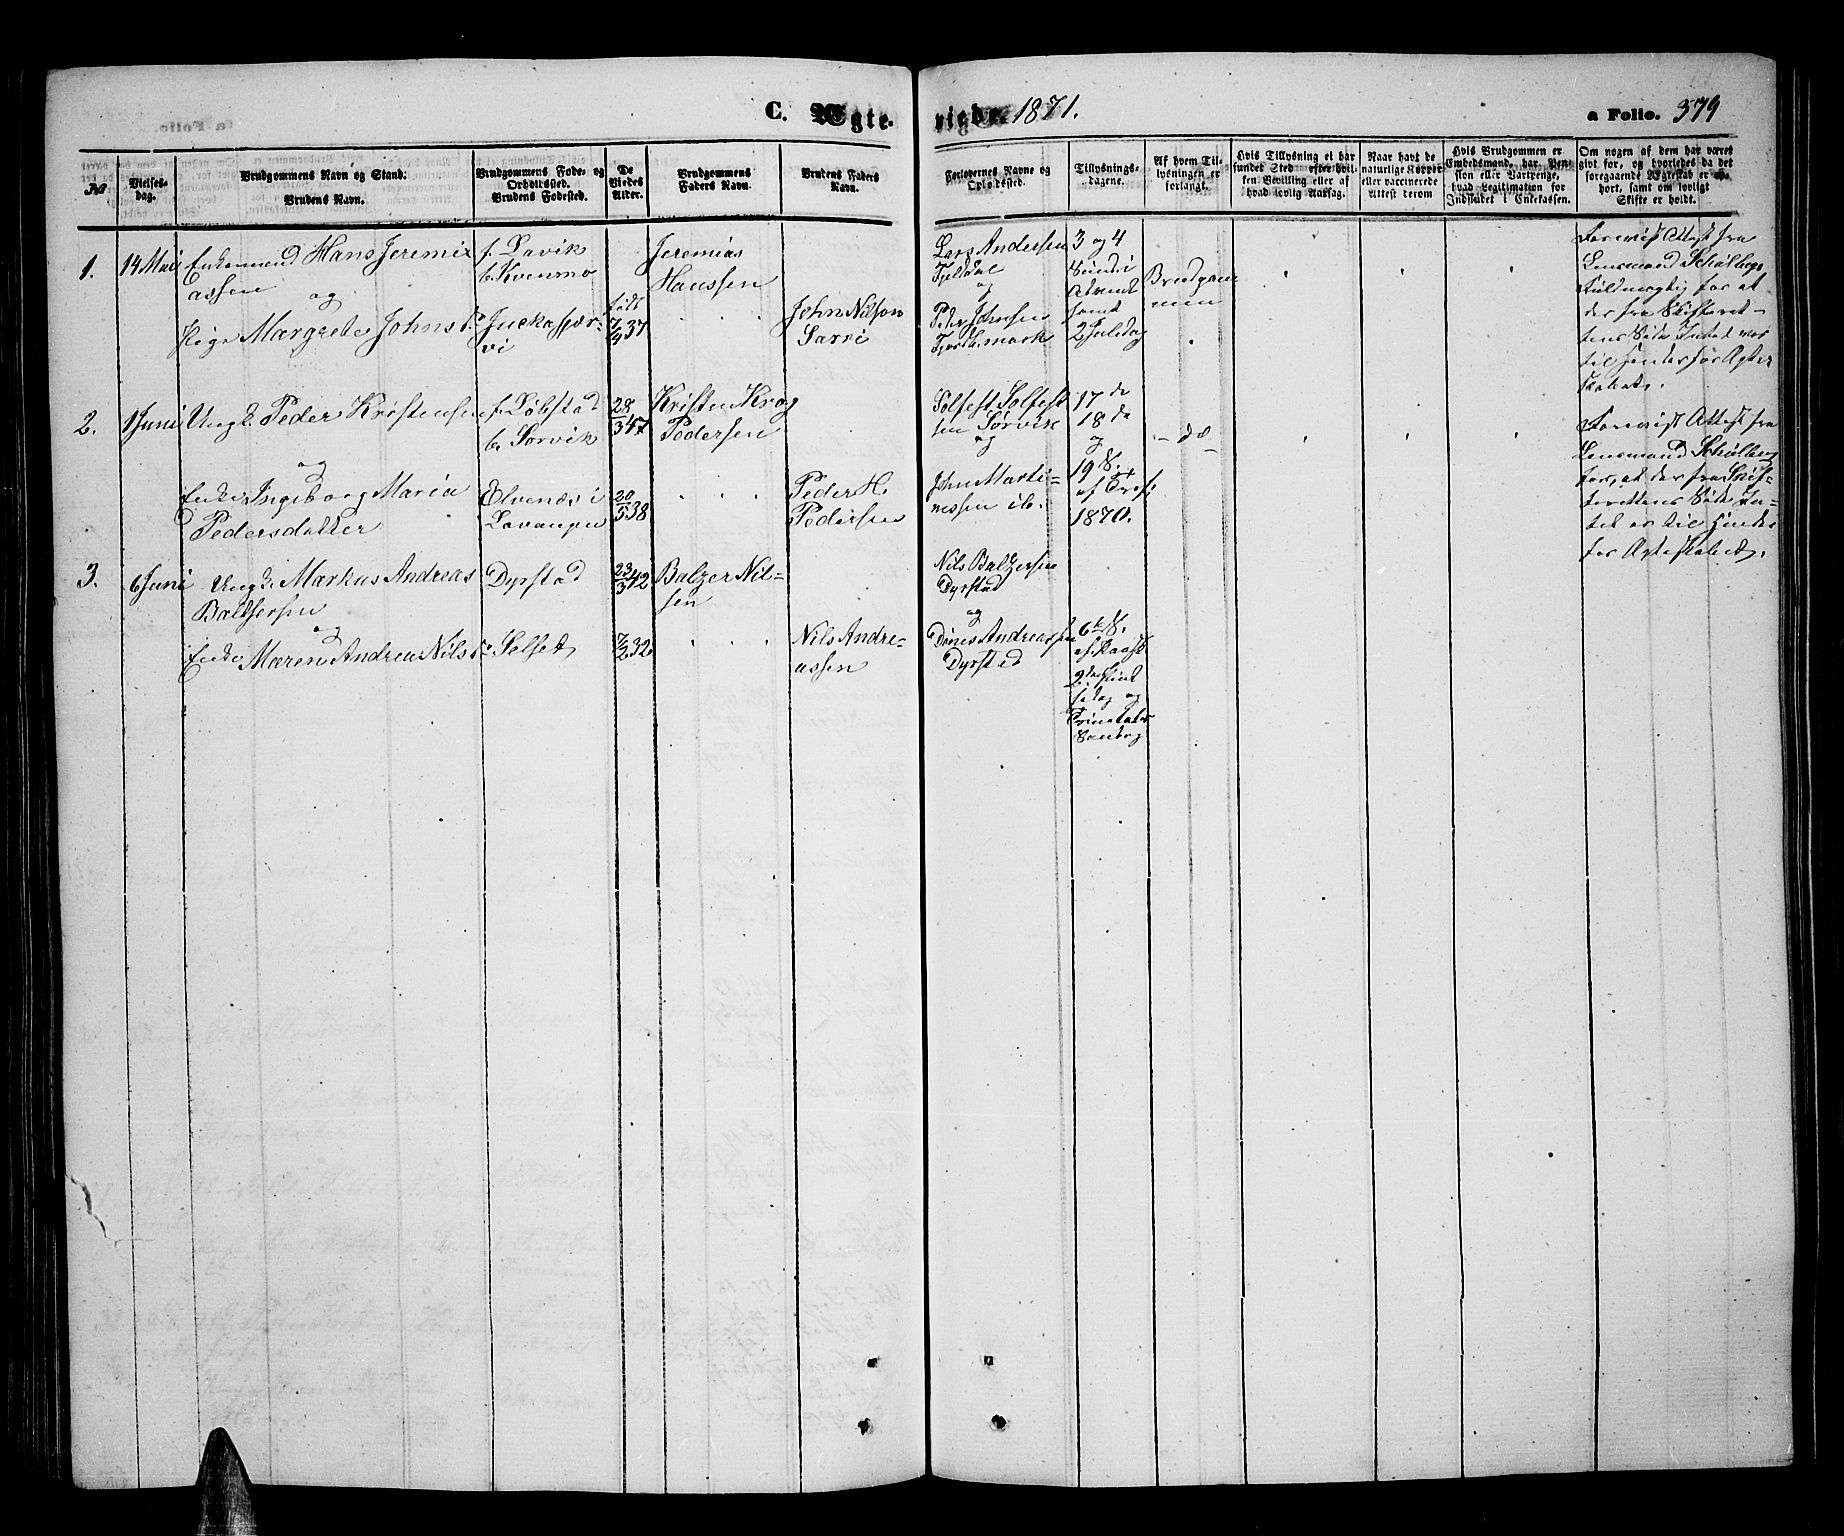 C. Ægte- viede. 1871. a Folio. 379
№
Vielses-
dag.
Brudgommens Navn og Stand.
Brudens Navn.
Brudgommens Føde- og
Opholdssted.
Brudens Fødested.
De
Viedes
Alter.
Brudgommens
Faders Navn.
Brudens Faders
Navn.
Forlovernes Navne og
Opholdssted.
Tillysnings-
dagene.
Af hvem Til-
lysningen er
forlangt.
Hvis Tillysning ei har
fundet Sted, efter hvil-
ken Bevilling eller af
hvad lovlig Aarsag.
Naar havt de
naturlige Kopper
eller vaccinerede
Attest derom
Hvis Brudgommen er
Embedsmand, har Pen-
sion eller Vartpenge,
hvad Legitimation for
Indskudet i Enkekassen.
Om nogen af dem har været
gift før, og hvorledes da det
foregaaende Ægteskab er op-
hørt, samt om lovligt
Skifte er holdt.
1.
14 Mai
Enkemand Hans Jeremi-
assen
og
Pige Margrete Johns D.
f. Lavik
b. Kvenmo
Juckasjær-
vi
født
7/9 37
Jeremias
Hanssen
John Nilson
Sarri
Lars Andersen
Fjeldal
og
Peder Johnsen
3 og 4
Sønds i
Advent
samt
2 Juledag
Brudgom
men
Forevist Attest fra
Lensmand Schølbergs
fuldmægtig for at
der fra Skifteret-
tens Side Intet var
til Hinder for Ægte
skabet.
2.
1 Juni
Ungk. Peder Kristensen
og
Enke Ingeborg Maria
Pedersdatter
f. Løbstad
b. Sørvik
Elvenæs i
Lavangen
28/3 47
20/5 38
Kristen Krog
Pedersen
Peder H.
Pedersen
Solfest Solfest
sen Sørvik
og
John Marti-
nussen ib.
17 de
18 de
og
19 S.
af Tref.
1870.
- do -
Forevist Attest fra
Lensmand Schølberg
for, at der fra Skif-
terettens Side In-
tet er til Hinder
for Ægteskabet.
3.
6 Juni
Ungk. Markus Andreas
Baltsersen
og
Enke Maren Andrea Nils D.
Dyrstad
Selset
23/3 42
7/2 32
Balzer Nil-
sen
Nils Andre-
assen
Nils Balzersen
Dyrstad
og
Dines Andreassen
Dyrstad
6te S.
ef. Paask
2den Pint
sedag og
Trinitatis
Søndag